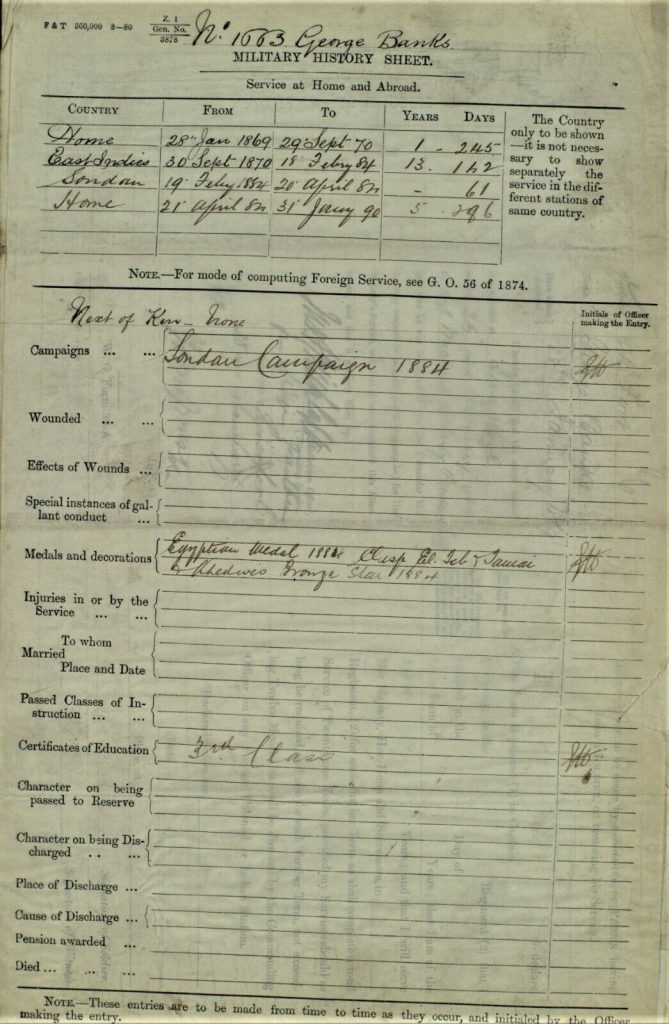 F & T 360,000 8—80
Z. 1
Gen. No.
3878
No. 1663 George Banks
MILITARY HISTORY SHEET.
Service at Home and Abroad.
COUNTRY FROM TO YEARS DAYS
Home 28th Jan 1869 29 Sept 70 1 - 245
East Indies 30 Sept 1870 18 Febry 84 13 . 142
Soudan 19 Febry 1884 20 April 84 - 61
Home 21 April 84 31 Jany 90 5 . 286
The Country
only to be shown
—it is not neces-
sary to show
separately the
service in the dif-
ferent stations of
same country.
NOTE.—For mode of computing Foreign Service, see G. O. 56 of 1874.
Initials of Officer
making the Entry.
Next of Kin - None
Campaigns ... ... Soudan Campaign 1884
Wounded ... ...
Effects of Wounds ...
Special instances of gal-
lant conduct ...
Medals and decorations Egyptian Medal 1884 Clasp El. Teb & Tamai
& Khedives Bronze Star 1884
Injuries in or by the
Service ... ...
To whom
Married
Place and Date
Passed Classes of In-
struction ... ...
Certificates of Education 3rd Class
Character on being
passed to Reserve
Character on being Dis-
charged .. ...
Place of Discharge ...
Cause of Discharge ...
Pension awarded ...
Died ... ... ...
NOTE.—These entries are to be made from time to time as they occur, and initialed by the Officer
making the entry.